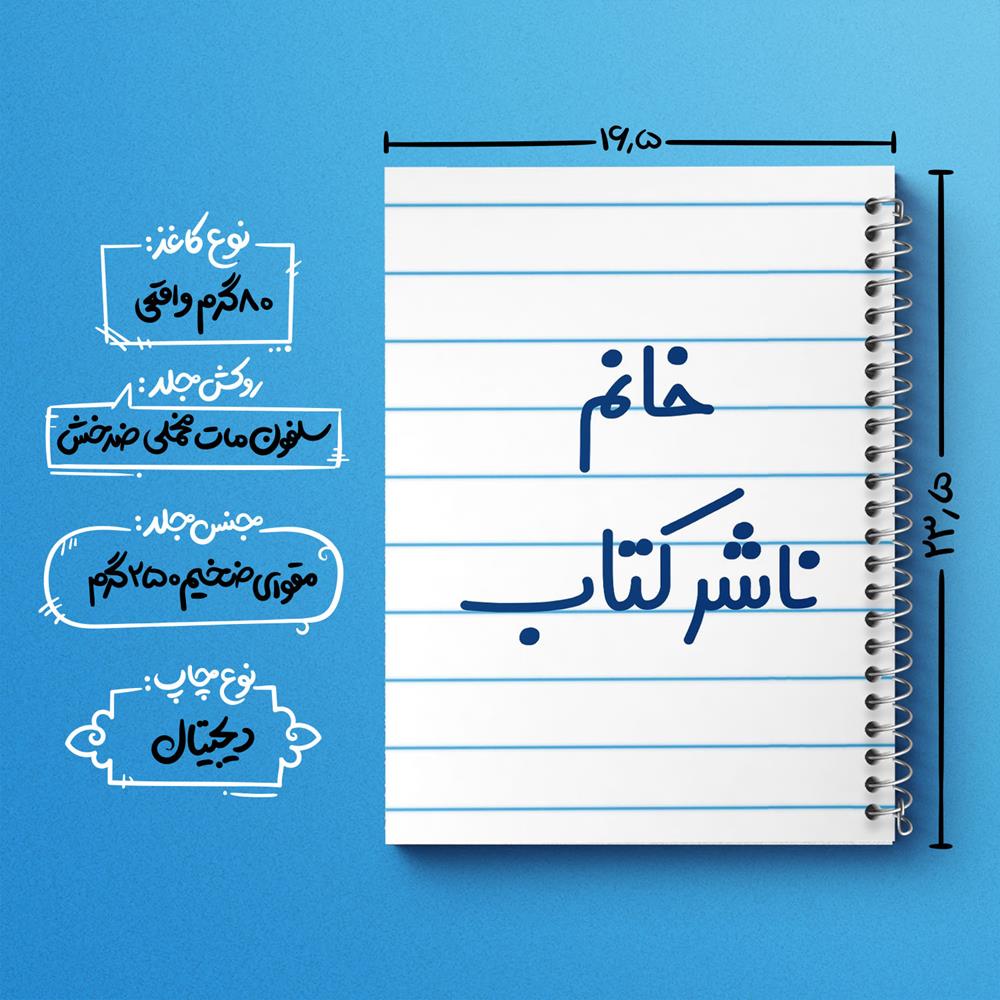 ۱۶٫۵
۲۳٫۵
خانم
ناشر کتاب
نوع کاغذ:
۸۰ گرم واقعی
روکش جلد:
سلفون مات مخملی ضدخش
جنس جلد:
مقوای ضخیم ۲۵۰ گرم
نوع چاپ:
دیجیتال